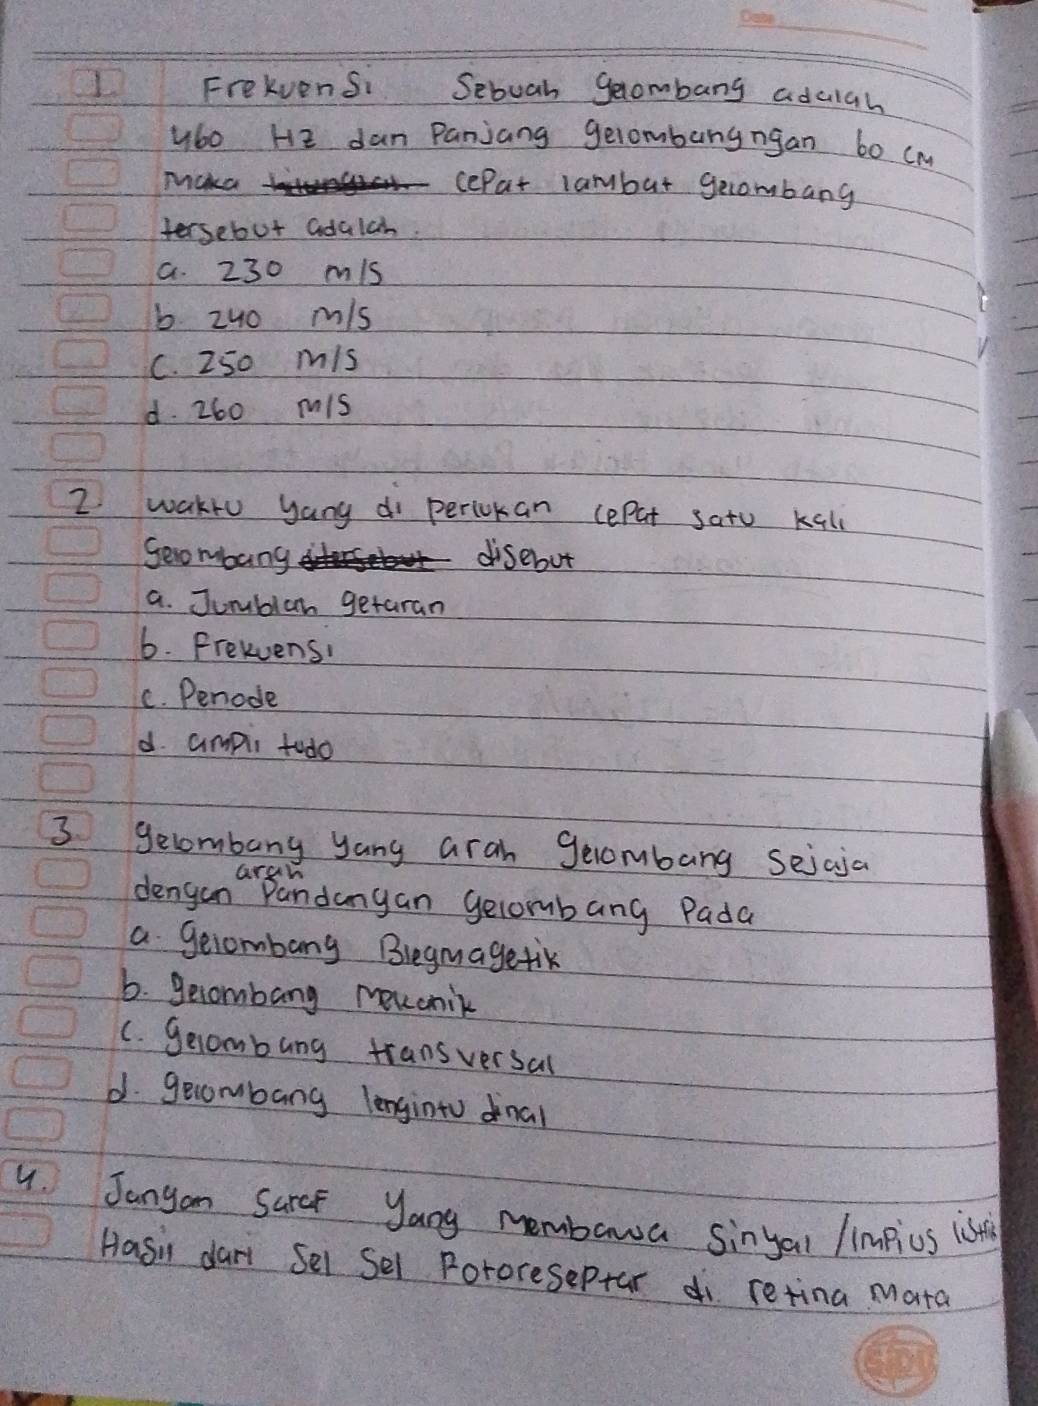 Date
1 Frekuensi Sebuah gelombang adalah
460 Hz dan Panjang gelombangngan 60 cM
Maka cepat lambat gelombang
tersebut adalah.
a. 230 m/s
b 240 m/s
c. 250 m/s
d. 260 m/s
2 waktu yang di perlukan cepat satu kali
Gelombang disebut
a. Jumblah getaran
b. Frekuensi
c. Periode
d. ampli tudo
3. gelombang yang arah gelombang sejaja
arah
dengan Pandangan gelombang Pada
a. gelombang Blegmagetik
b. gelombang Mekanik
c. gelombang transversal
d. gelombang lengintu dinal
4. Jangan saraf yang Membawa Sinyal /Implus listri
Hasil dari Sel Sel Potoreseptar di retina Mata
SiDU